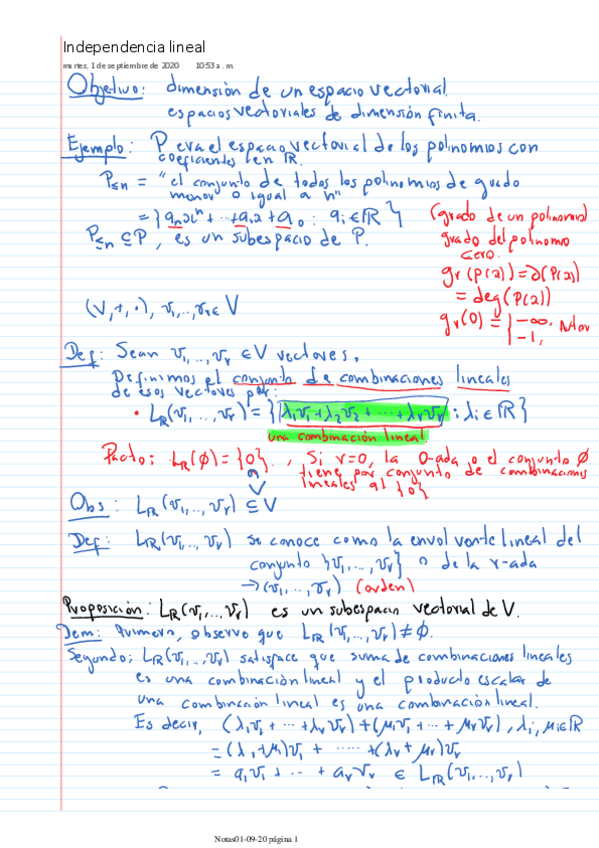 Independencia lineal
martes, 1 de septiembre de 2020 10:53 a. m.
Objetivo: dimensión de un espacio vectorial.
espacios vectoriales de dimensión finita.
Ejemplo: P era el espacio vectorial de los polinomios con
coeficientes en ℝ.
P≤n = "el conjunto de todos los polinomios de grado
menor o igual a n"
= {aₙxⁿ + ··· + a₁x + a₀ : aᵢ ∈ ℝ}
(grado de un polinomio)
P≤n ⊆ P, es un subespacio de P.
grado del polinomio
cero.
gr(p(x)) = ∂(P(x))
= deg(P(x))
gr(0) = { -∞, Autor
-1,
(V, +, ·), v₁, .., vᵣ ∈ V
Def: Sean v₁, .., vᵣ ∈ V vectores.
Definimos el conjunto de combinaciones lineales
de esos vectores por:
• Lℝ(v₁, .., vᵣ) = {λ₁v₁ + λ₂v₂ + ··· + λᵣvᵣ : λᵢ ∈ ℝ}
una combinación lineal
Pacto: Lℝ(∅) = {0}. , Si r=0, la 0-ada o el conjunto ∅
tiene por conjunto de combinaciones
lineales al {0}
∩
V
Obs: Lℝ(v₁, .., vᵣ) ⊆ V
Def: Lℝ(v₁, .., vᵣ) se conoce como la envolvente lineal del
conjunto {v₁, .., vᵣ} o de la r-ada
→ (v₁, .., vᵣ) (orden)
Proposición: Lℝ(v₁, .., vᵣ) es un subespacio vectorial de V.
Dem: Primero, observo que Lℝ(v₁, .., vᵣ) ≠ ∅.
Segundo; Lℝ(v₁, .., vᵣ) satisface que suma de combinaciones lineales
es una combinación lineal y el producto escalar de
una combinación lineal es una combinación lineal.
Es decir, (λ₁v₁ + ··· + λᵣvᵣ) + (μ₁v₁ + ··· + μᵣvᵣ), λᵢ, μᵢ ∈ ℝ
= (λ₁+μ₁)v₁ + ····· + (λᵣ+μᵣ)vᵣ
= a₁v₁ + ·· + aᵣvᵣ ∈ Lℝ(v₁, .., vᵣ)
Notas01-09-20 página 1